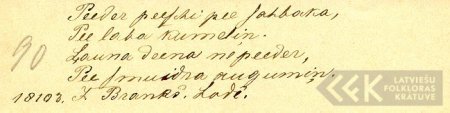 Peeder peeschi pee sahbaka,
Pee laba kumelin.
Launa deena nepeeder,
Pee smuidra augumin.
90
18103. F. Brank̄. Lodē.
LATVIEŠU
FOLKLORAS
KRĀTUVE